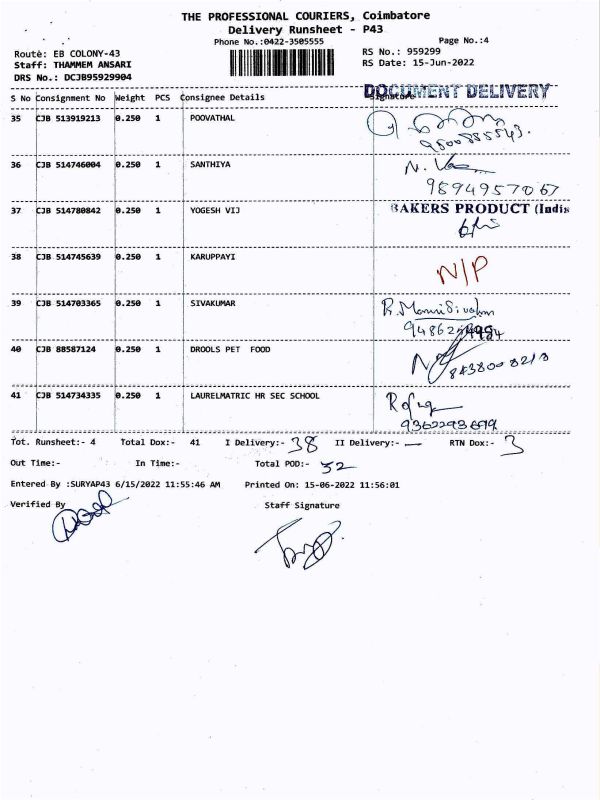 THE PROFESSIONAL COURIERS, Coimbatore
Delivery Runsheet - P43
Phone No.:0422-3505555
Page No.:4
Route: EB COLONY-43
RS No.: 959299
Staff: THAMMEM ANSARI
RS Date: 15-Jun-2022
DRS No.: DCJB95929904
DOCUMENT DELIVERY
S No Consignment No Weight PCS Consignee Details Signature
35 CJB 513919213 0.250 1 POOVATHAL
9500885543.
36 CJB 514746004 0.250 1 SANTHIYA
9894957067
37 CJB 514780842 0.250 1 YOGESH VIJ BAKERS PRODUCT (India
38 CJB 514745639 0.250 1 KARUPPAYI N/P
39 CJB 514703365 0.250 1 SIVAKUMAR
40 CJB 88587124 0.250 1 DROOLS PET FOOD
8438008218
41 CJB 514734335 0.250 1 LAURELMATRIC HR SEC SCHOOL
9362293699
Tot. Runsheet:- 4 Total Dox:- 41 I Delivery:- 38 II Delivery:- — RTN Dox:- 3
Out Time:- In Time:- Total POD:- 32
Entered By :SURYAP43 6/15/2022 11:55:46 AM Printed On: 15-06-2022 11:56:01
Verified By Staff Signature